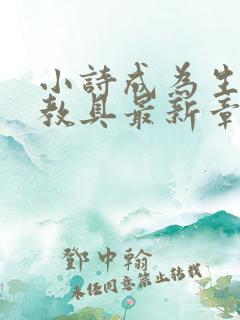 小詩成為生
教具最新章
鄧中翰
未经同意禁止转载